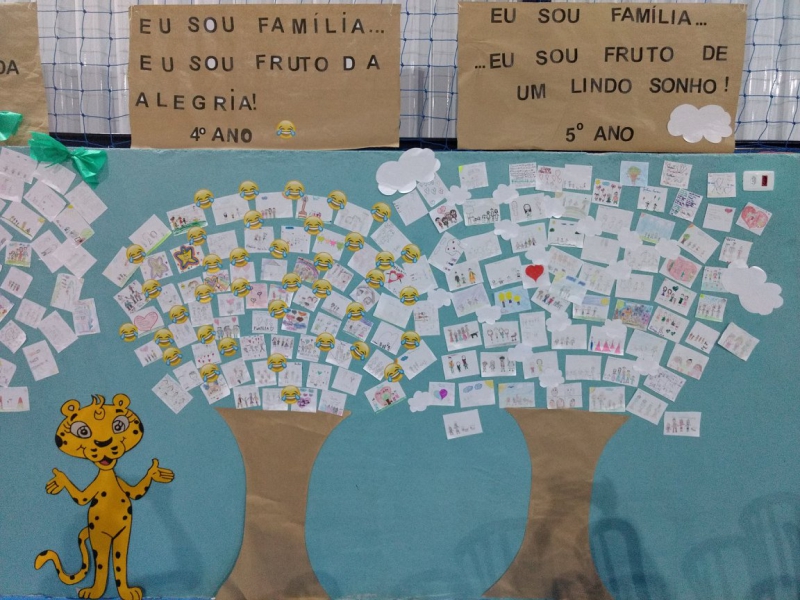 DA
EU SOU FAMÍLIA...
EU SOU FRUTO DA
ALEGRIA!
4º ANO
EU SOU FAMÍLIA...
...EU SOU FRUTO DE
UM LINDO SONHO!
5º ANO